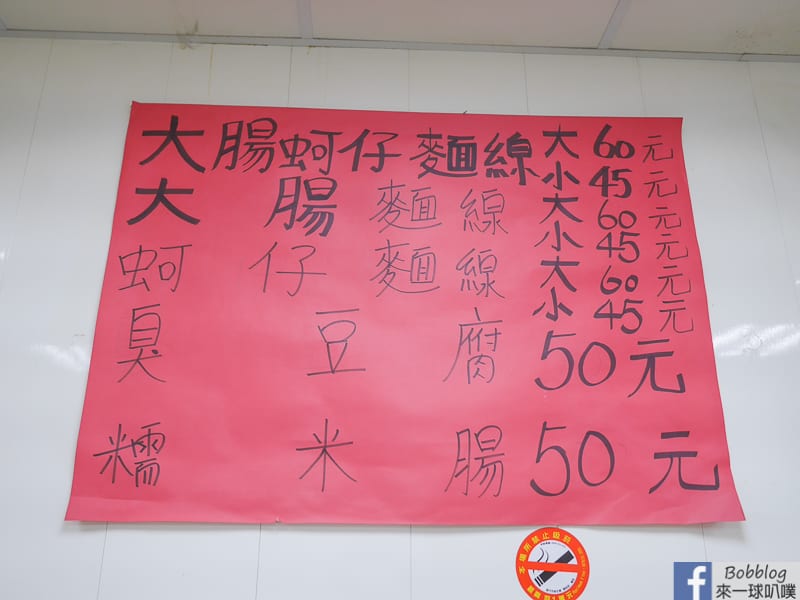 大腸蚵仔麵線 大 60 元
小 45 元
大腸麵線 大 60 元
小 45 元
蚵仔麵線 大 60 元
小 45 元
臭豆腐 50 元
糯米腸 50 元
本場所禁止吸菸
Bobblog
來一球叭噗